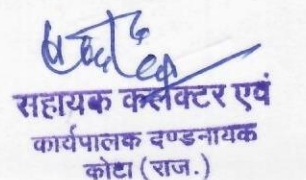 सहायक कलेक्टर एवं
कार्यपालक दण्डनायक
कोटा (राज.)